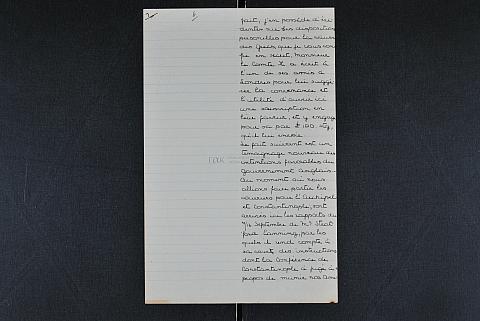 fait, j'en possède d'évi
dentes sur ses dispositions
personnelles pour la cause
des Grecs, que je vous con
fie en secret, Monsieur
le Comte. Il a écrit à
l'un de ses amis à
Londres pour lui suggé
rer la convenance et
l'utilité d'ouvrir ici
une souscription en
leur faveur, et y engage
pour sa part £ 100. stg,
qu'il lui envoie.
Le fait suivant est un
témoignage nouveau des
intentions favorables du
Gouvernement Anglais.
Au moment où nous
allions faire partir les
courriers pour l'Archipel
et Constantinople, sont
arrivés ici les rapports du
Septembre de Mr Strat
ford Canning, par les
quels il rend compte à
sa cour, des instructions
dont la Conférence de
Constantinople a jugé à
propos de munir nos